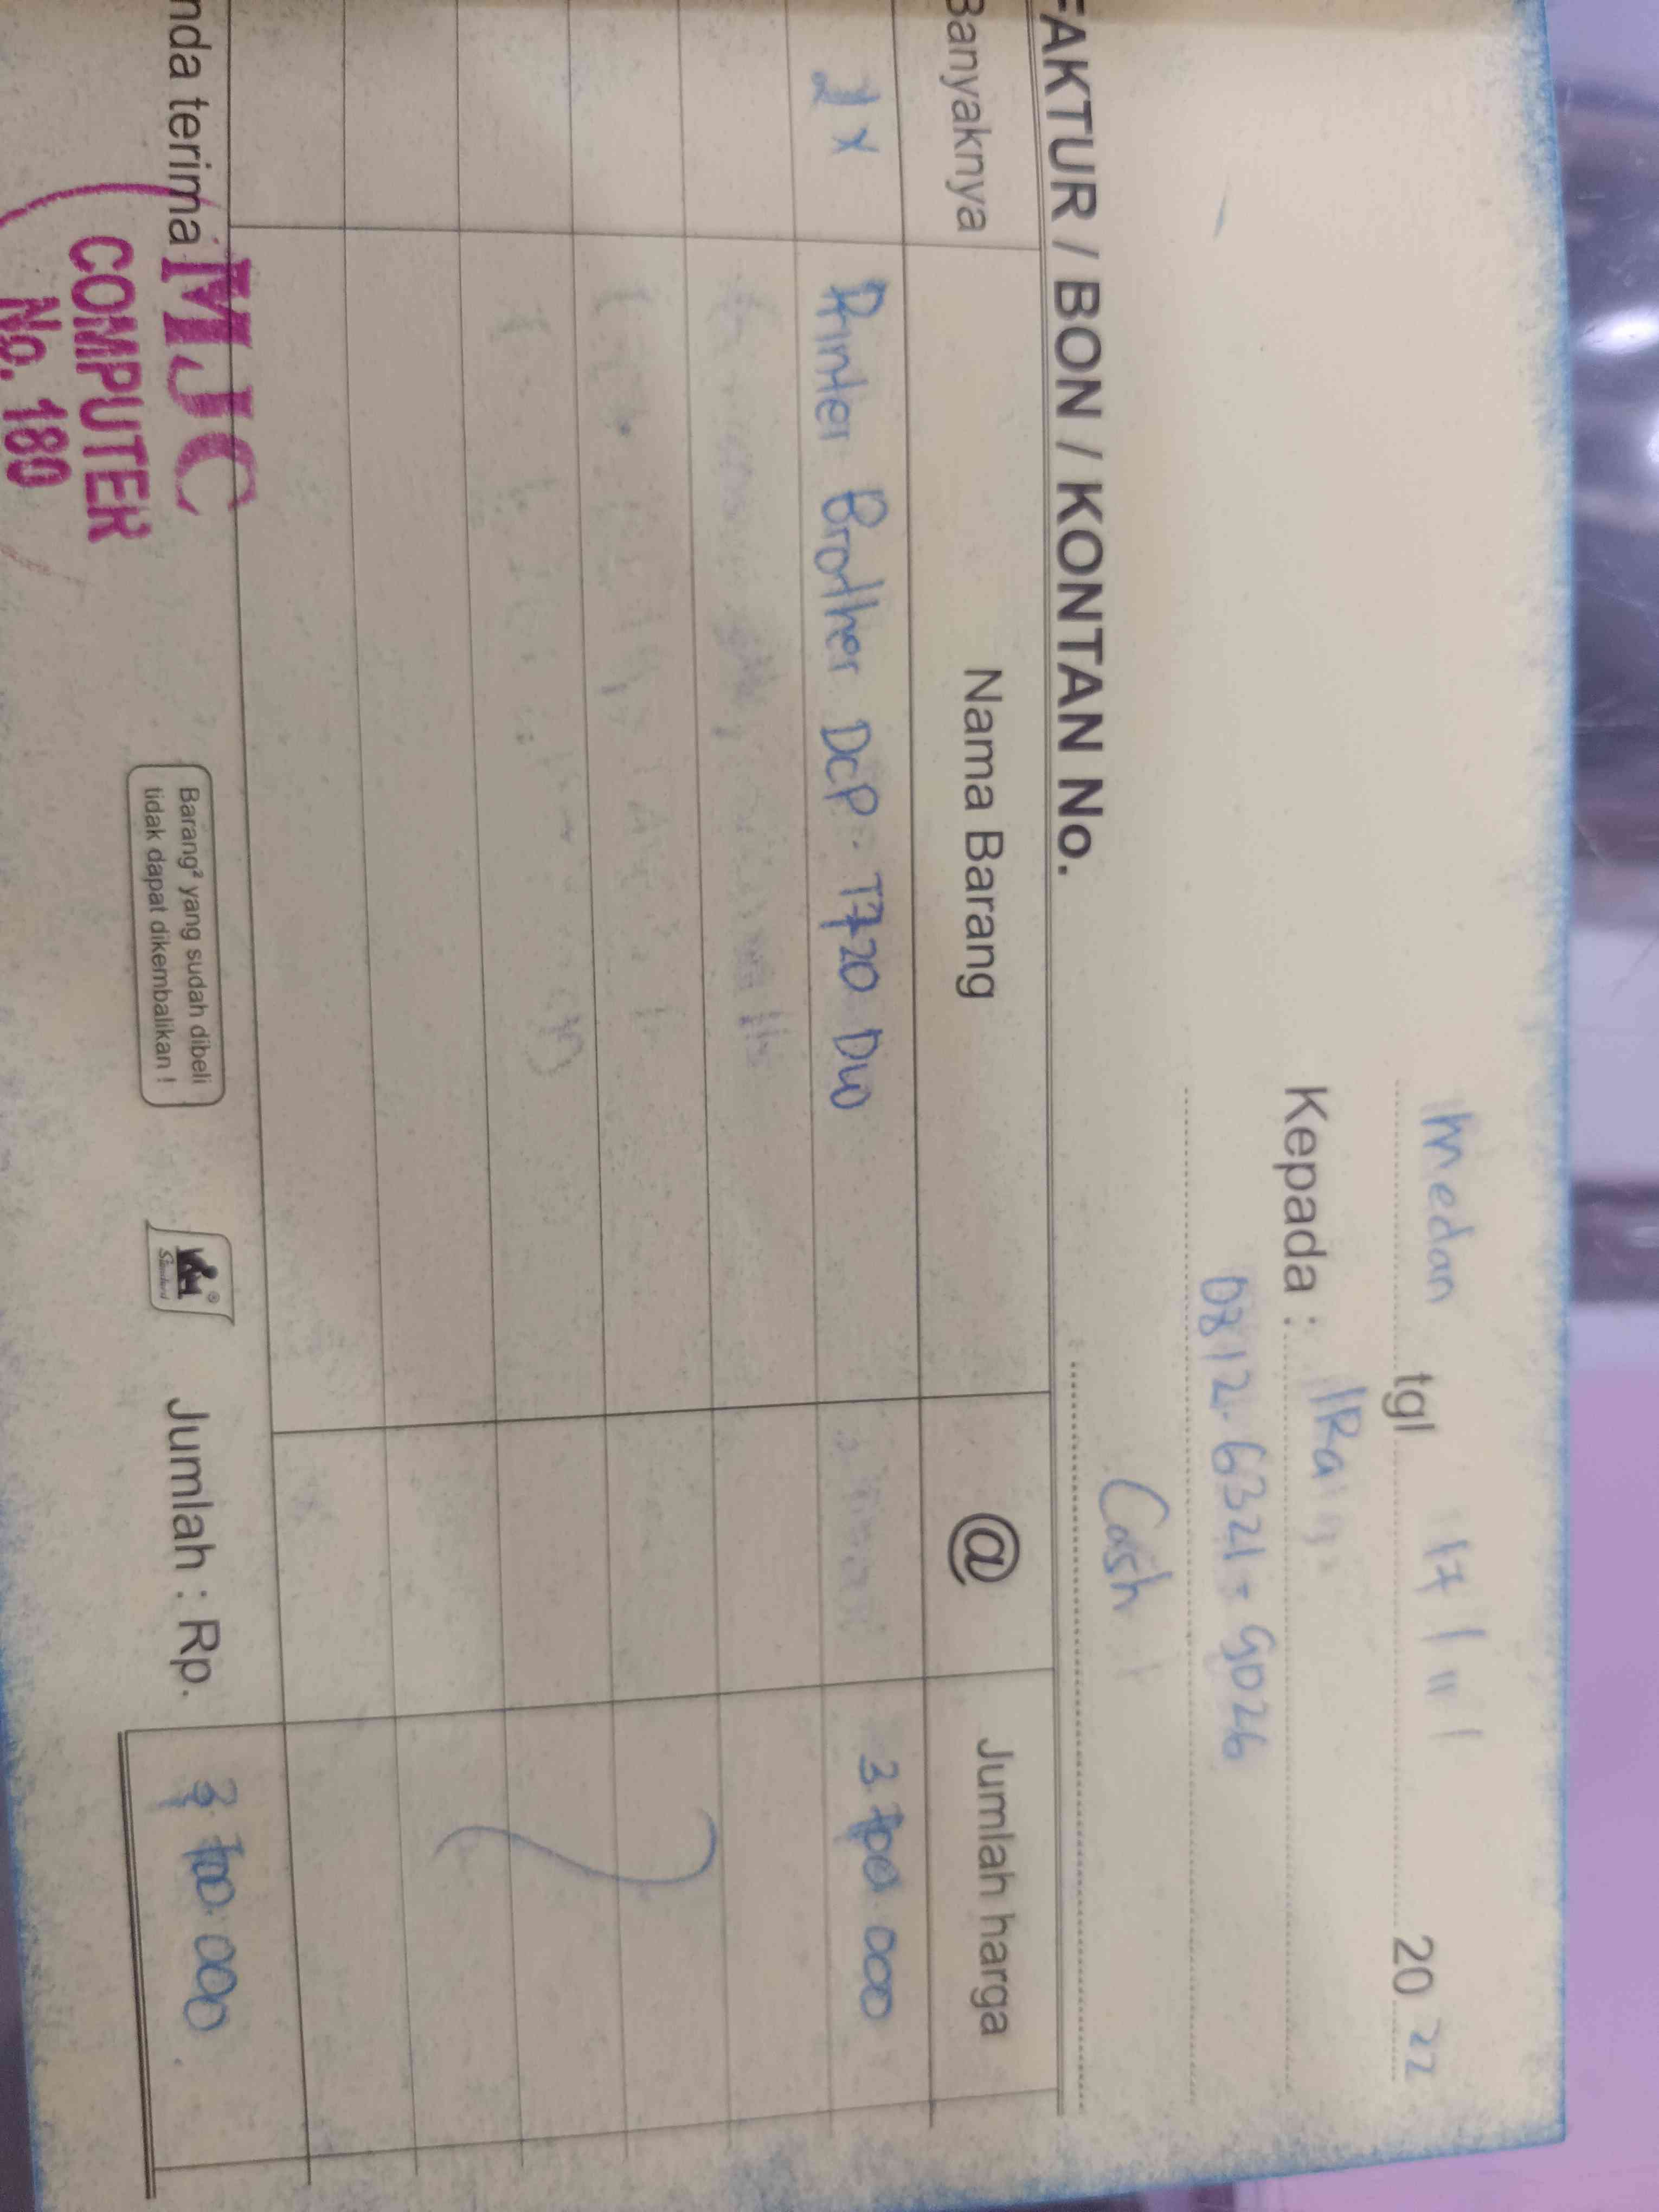 Medan tgl 17 / 11 / 20 22
Kepada :
0812-6321-9026
Cash
FAKTUR / BON / KONTAN No.
Banyaknya Nama Barang @ Jumlah harga
Printer Brother DCP-T720 DW 3.700.000
Jumlah : Rp. 3.700.000
nda terima
MJC
COMPUTER
No. 180
Barang² yang sudah dibeli
tidak dapat dikembalikan !